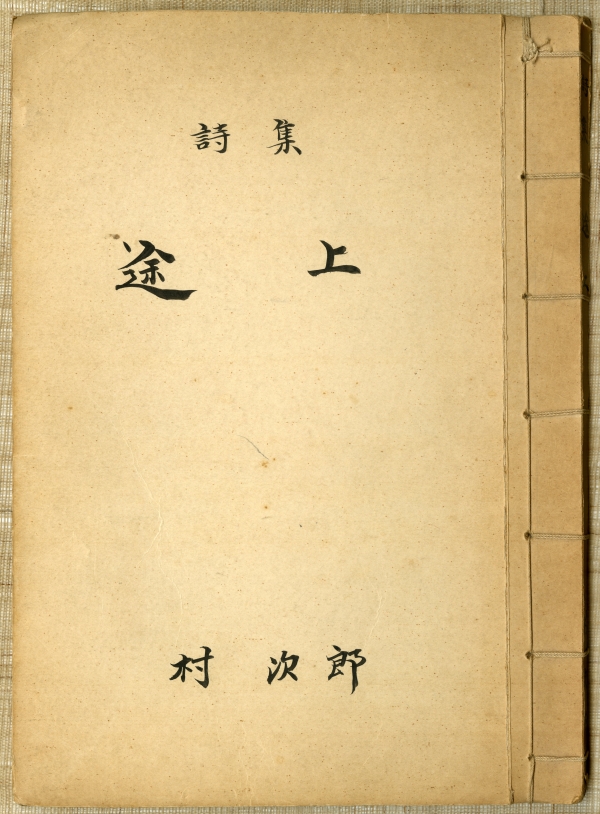 詩集
途上
村次郎